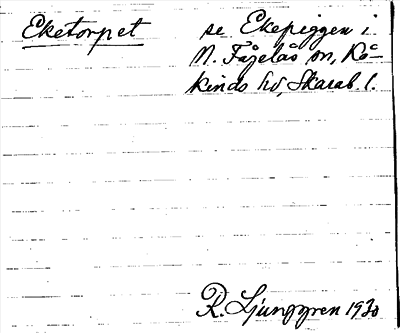 Eketorpet
se Ekepiggen i
N. Fågelås sn, Kå-
kinds hd, Skarab. l.
R. Ljunggren 1930